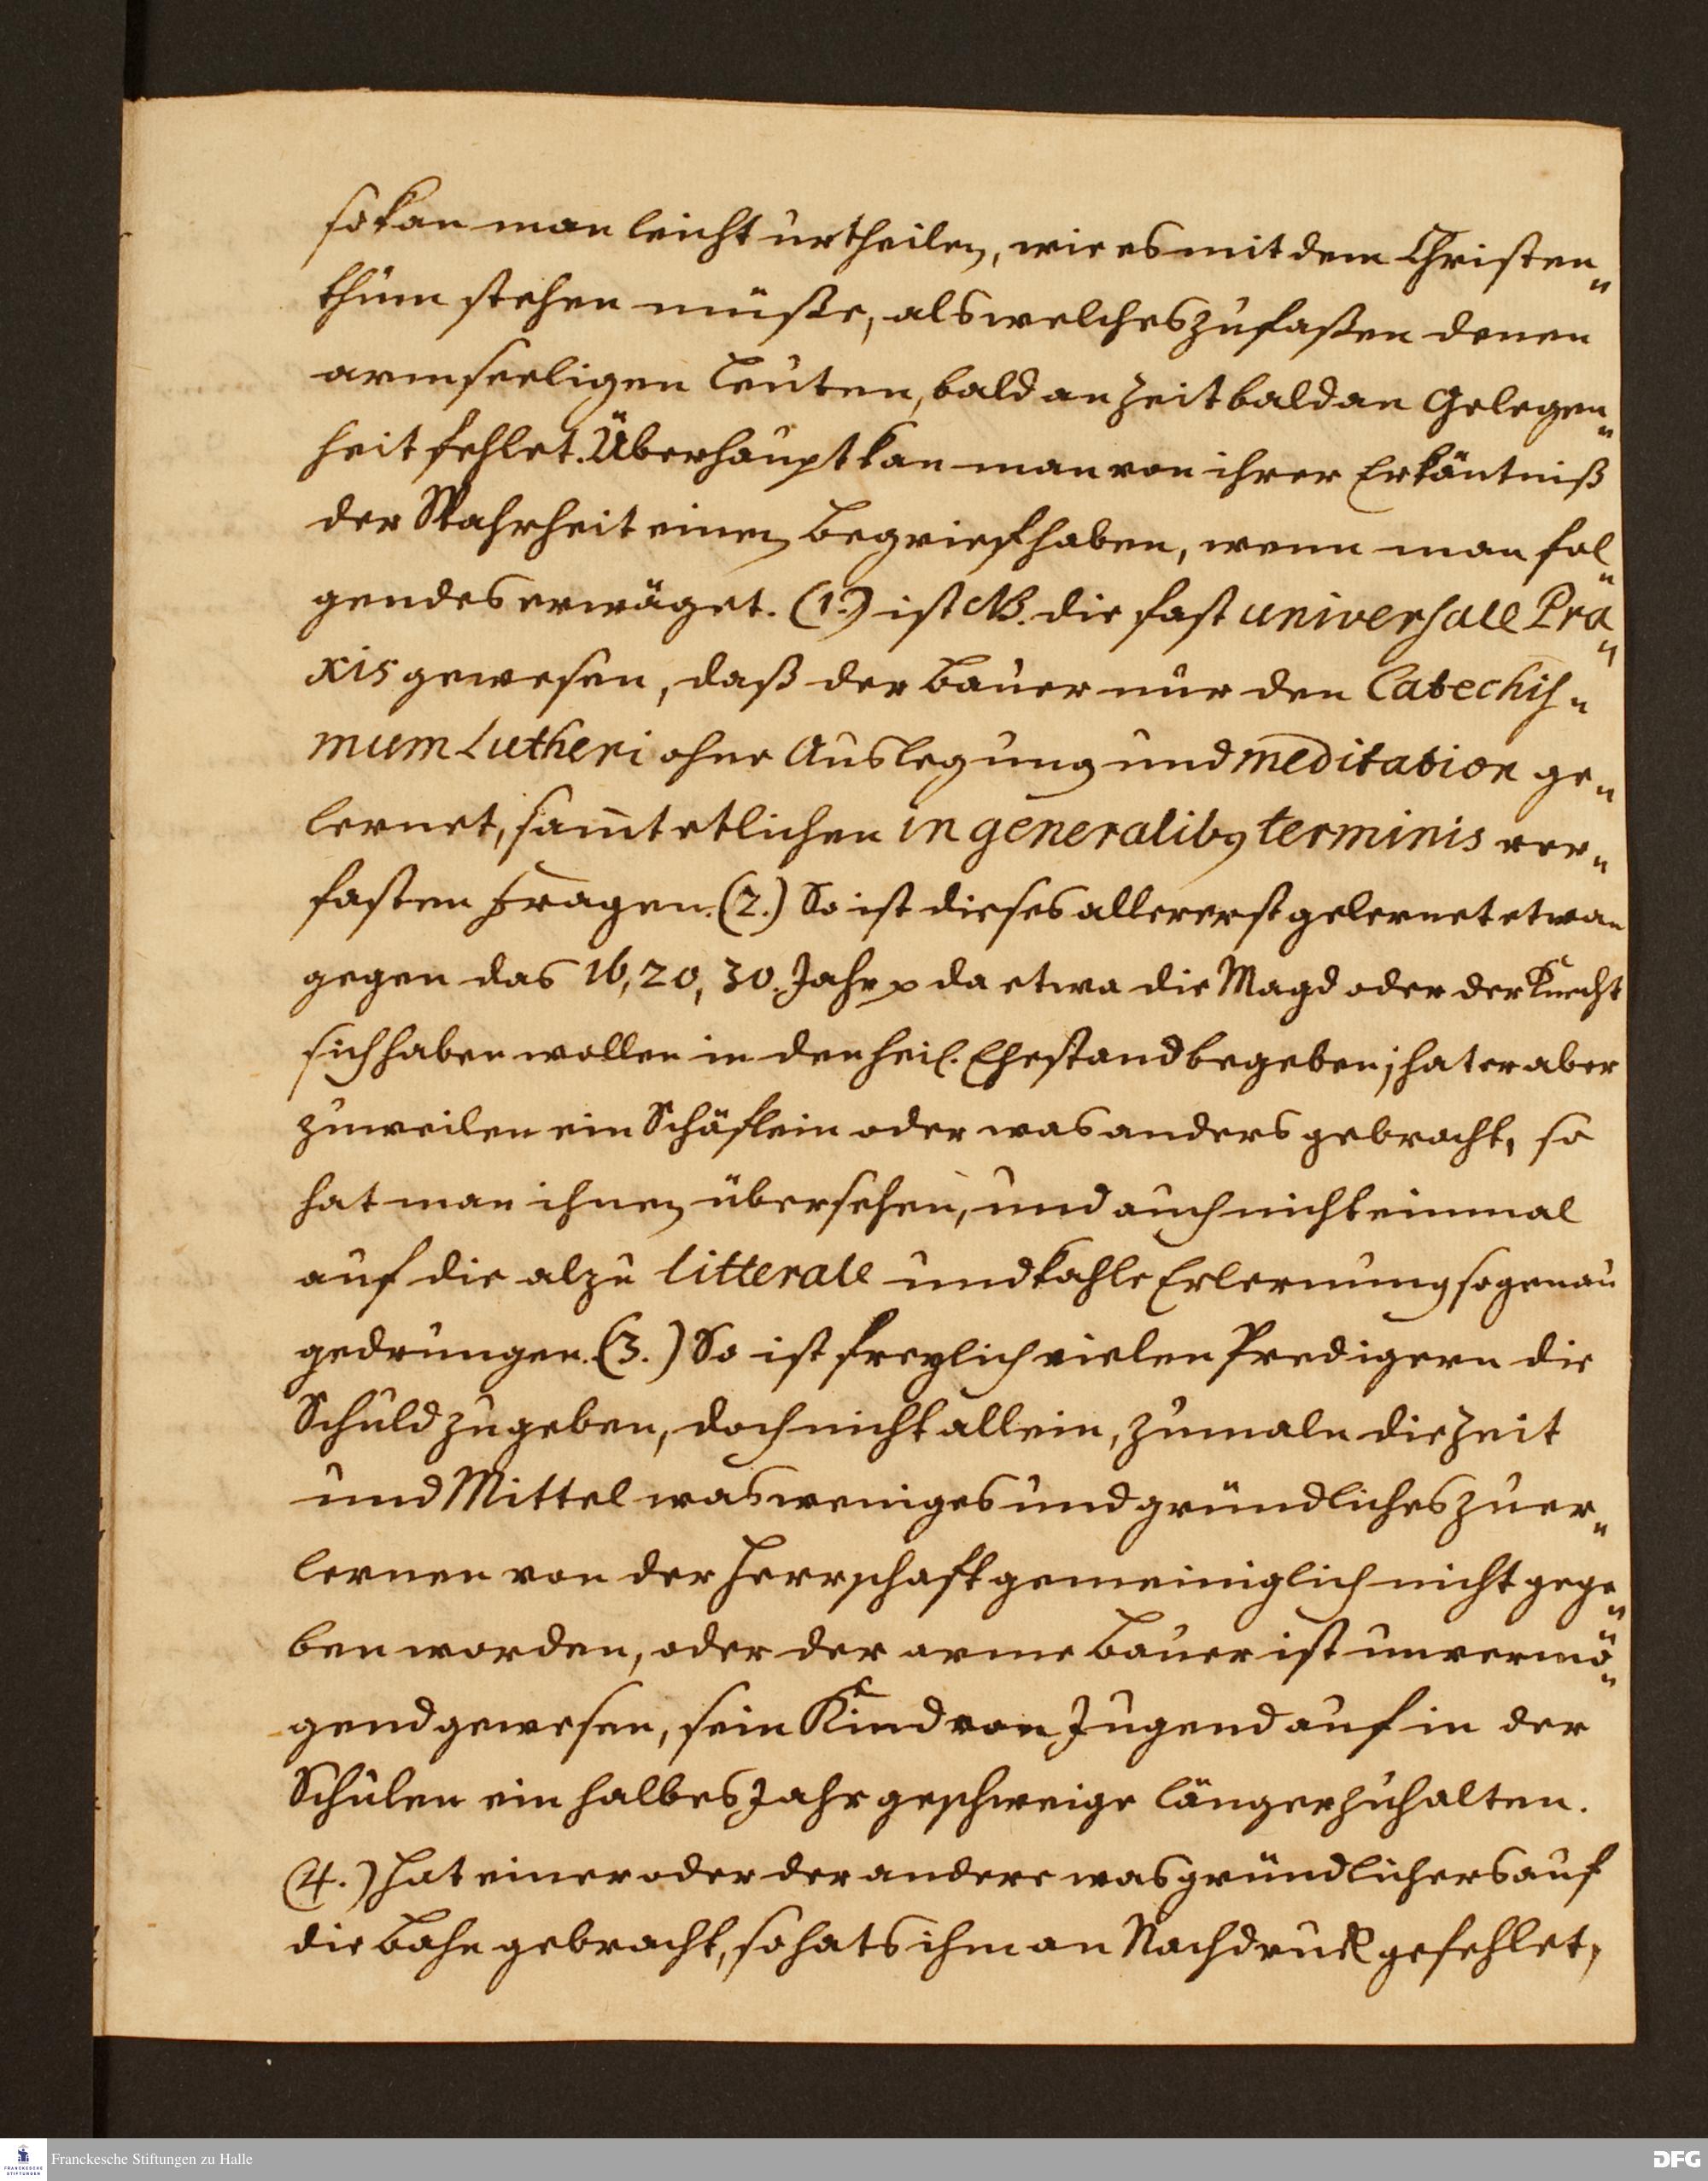 so kan man leicht urtheilen, wie es mit dem Christen„
thum stehen müße, als welches zu faßen denen
armseeligen Leuten, bald an Zeit bald an Gelegen„
heit fehlet. Überhaupt kan man von ihrer Erkäntniß
der Wahrheit einen Begrieff haben, wenn man fol„
gendes erwäget. (1.) ist NB. die fast universale Pra„
xis gewesen, daß der Bauer nur den Catechis„
mum Lutheri ohne Auslegung und meditation ge„
lernet, sam̄t etlichen in generalibꝰ terminis ver„
faßten Fragen. (2.) So ist dieses allererst gelernet etwan
gegen das 16, 20, 30. Jahr p da etwa die Magd oder der Knecht
sich haben wollen in den heil. Ehestand begeben; hat er aber
zuweilen ein Schäflein oder was anders gebracht, so
hat man ihnen übersehen, und auch nicht einmal
auf die alzu litterale und kahle Erlernung so genau
gedrungen. (3.) So ist freylich vielen Predigern die
Schuld zu geben, doch nicht allein, zumaln die Zeit
und Mittel was weniges und gründliches zu er„
lernen von der Herrschaft gemeiniglich nicht gege„
ben worden, oder der arme Bauer ist unvermö„
gend gewesen, sein Kind von Jugend auf in der
Schulen ein halbes Jahr geschweige länger zuhalten.
(4.) Hat einer oder der andere was gründlichers auf
die Bahn gebracht, so hats ihm an Nachdruck gefehlet,
Franckesche Stiftungen zu Halle
FRANCKESCHE
STIFTUNGEN
DFG